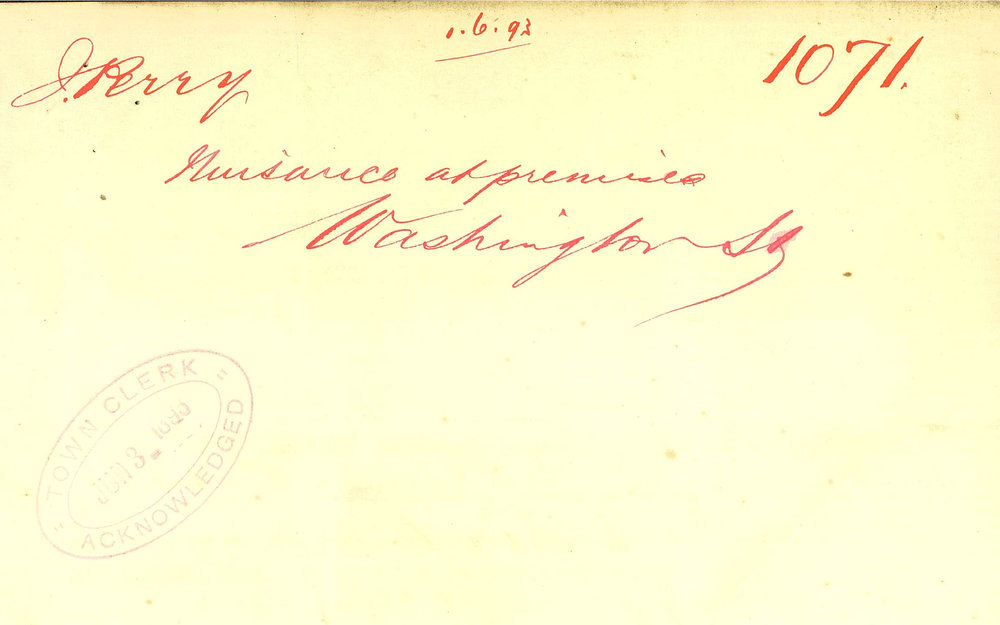 1.6.93
J. Perry
1071.
Nuisance at premises
Washington St
" TOWN CLERK "
JUN 3 - 1893
ACKNOWLEDGED